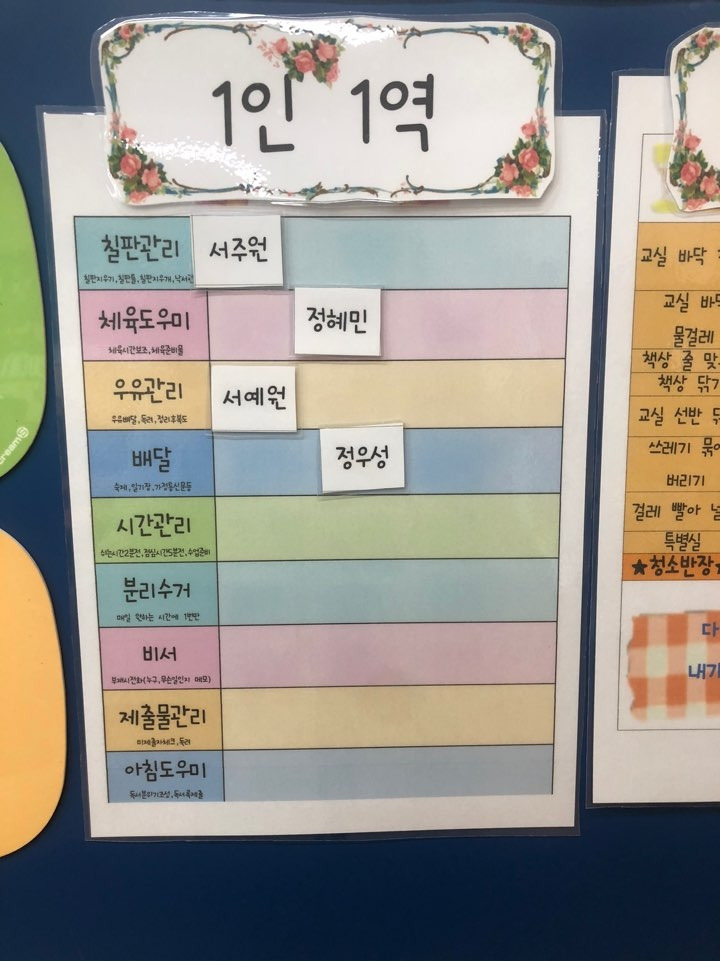 1인 1역
칠판관리
서주원
칠판지우기, 칠판틀, 칠판지우개, 낙서관
체육도우미
정혜민
체육시간보조, 체육준비물
우유관리
서예원
우유배달, 독려, 정리후복도
배달
정우성
숙제, 일기장, 가정통신문등
시간관리
쉬는시간2분전, 점심시간5분전, 수업준비
분리수거
매일 원하는 시간에 1번만
비서
부재시전화(누구, 무슨일인지 메모)
제출물관리
미제출자체크, 독려
아침도우미
독서분위기조성, 독서록제출
교실 바닥
교실 바닥
물걸레
책상 줄 맞
책상 닦기
교실 선반
쓰레기 묶어
버리기
걸레 빨아 널
특별실
★청소반장★
다
내가
cream